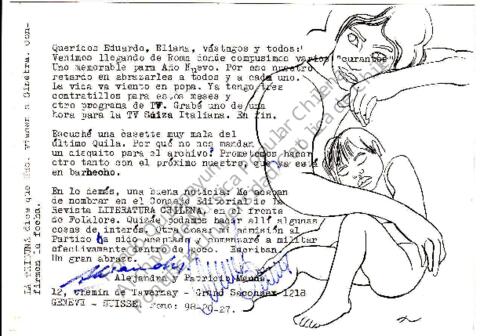 Quericos Eduardo, Eliana, vástagos y todos:
Venimos llegando de Roma donde compusimos varios "curantos"
Uno memorable para Año Nuevo. Por eso nuestro
retardo en abrazarles a todos y a cada uno.
La vida va viento en popa. Ya tengo tres
contratillos para estos meses y
otro programa de TV. Grabé uno de una
hora para la TV Suiza Italiana. En fin.
Escuché una casette muy mala del
último Quila. Por qué no nos mandan
un cisquito para el archivo? Prometemos hacer
otro tanto con el próximo nuestro, que ya está
en barbecho.
En lo demás, una buena noticia: Me acaban
de nombrar en el Consejo Editorial de la
Revista LITERATURA CHILENA, en el frente
de Folklore. Quizás podamos sacar allí algunas
cosas de interés. Otra cosa: mi admisión al
Partido ha sido aceptada y comenzaré a militar
efectivamente dentro de poco. Escriban.
Un gran abrazo.
Alejandra y Patricio Manns
12, Chemin de Tavernay - Grand Saconnex 1218
GENEVE - SUISSE. Fono: 98-26-27.
dice que Uds. vienen a Ginebra. Con-
firmen la fecha.